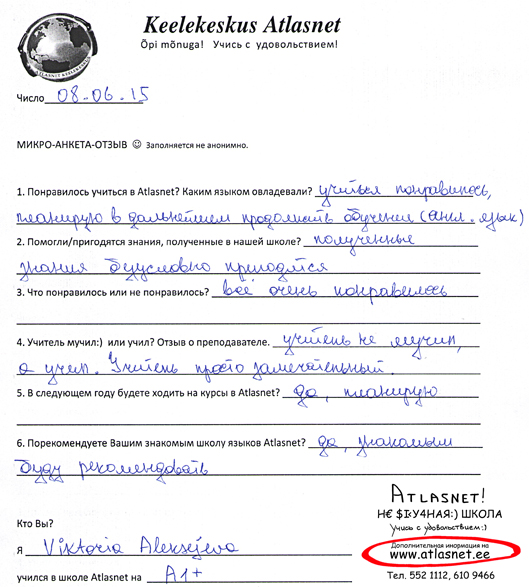 Keelekeskus Atlasnet
Õpi mõnuga! Учись с удовольствием!
ATLASNET KEELEKESKUS
Число 08.06.15
МИКРО-АНКЕТА-ОТЗЫВ ☺ Заполняется не анонимно.
1. Понравилось учиться в Atlasnet? Каким языком овладевали? учиться понравилось,
планирую в дальнейшем продолжить обучение (англ. язык)
2. Помогли/пригодятся знания, полученные в нашей школе? полученные
знания безусловно пригодятся
3. Что понравилось или не понравилось? всё очень понравилось
4. Учитель мучил:) или учил? Отзыв о преподавателе. учитель не мучил,
а учил. Учитель просто замечательный.
5. В следующем году будете ходить на курсы в Atlasnet? да, планирую
6. Порекомендуете Вашим знакомым школу языков Atlasnet? да, знакомым
буду рекомендовать
ATLASNET!
Н€ $Ь:У4НАЯ:) ШКОЛА
Учись с удовольствием:)
Кто Вы?
Я Viktoria Aleksejeva
Дополнительная инормация на
www.atlasnet.ee
учился в школе Atlasnet на A1+
Тел. 552 1112, 610 9466